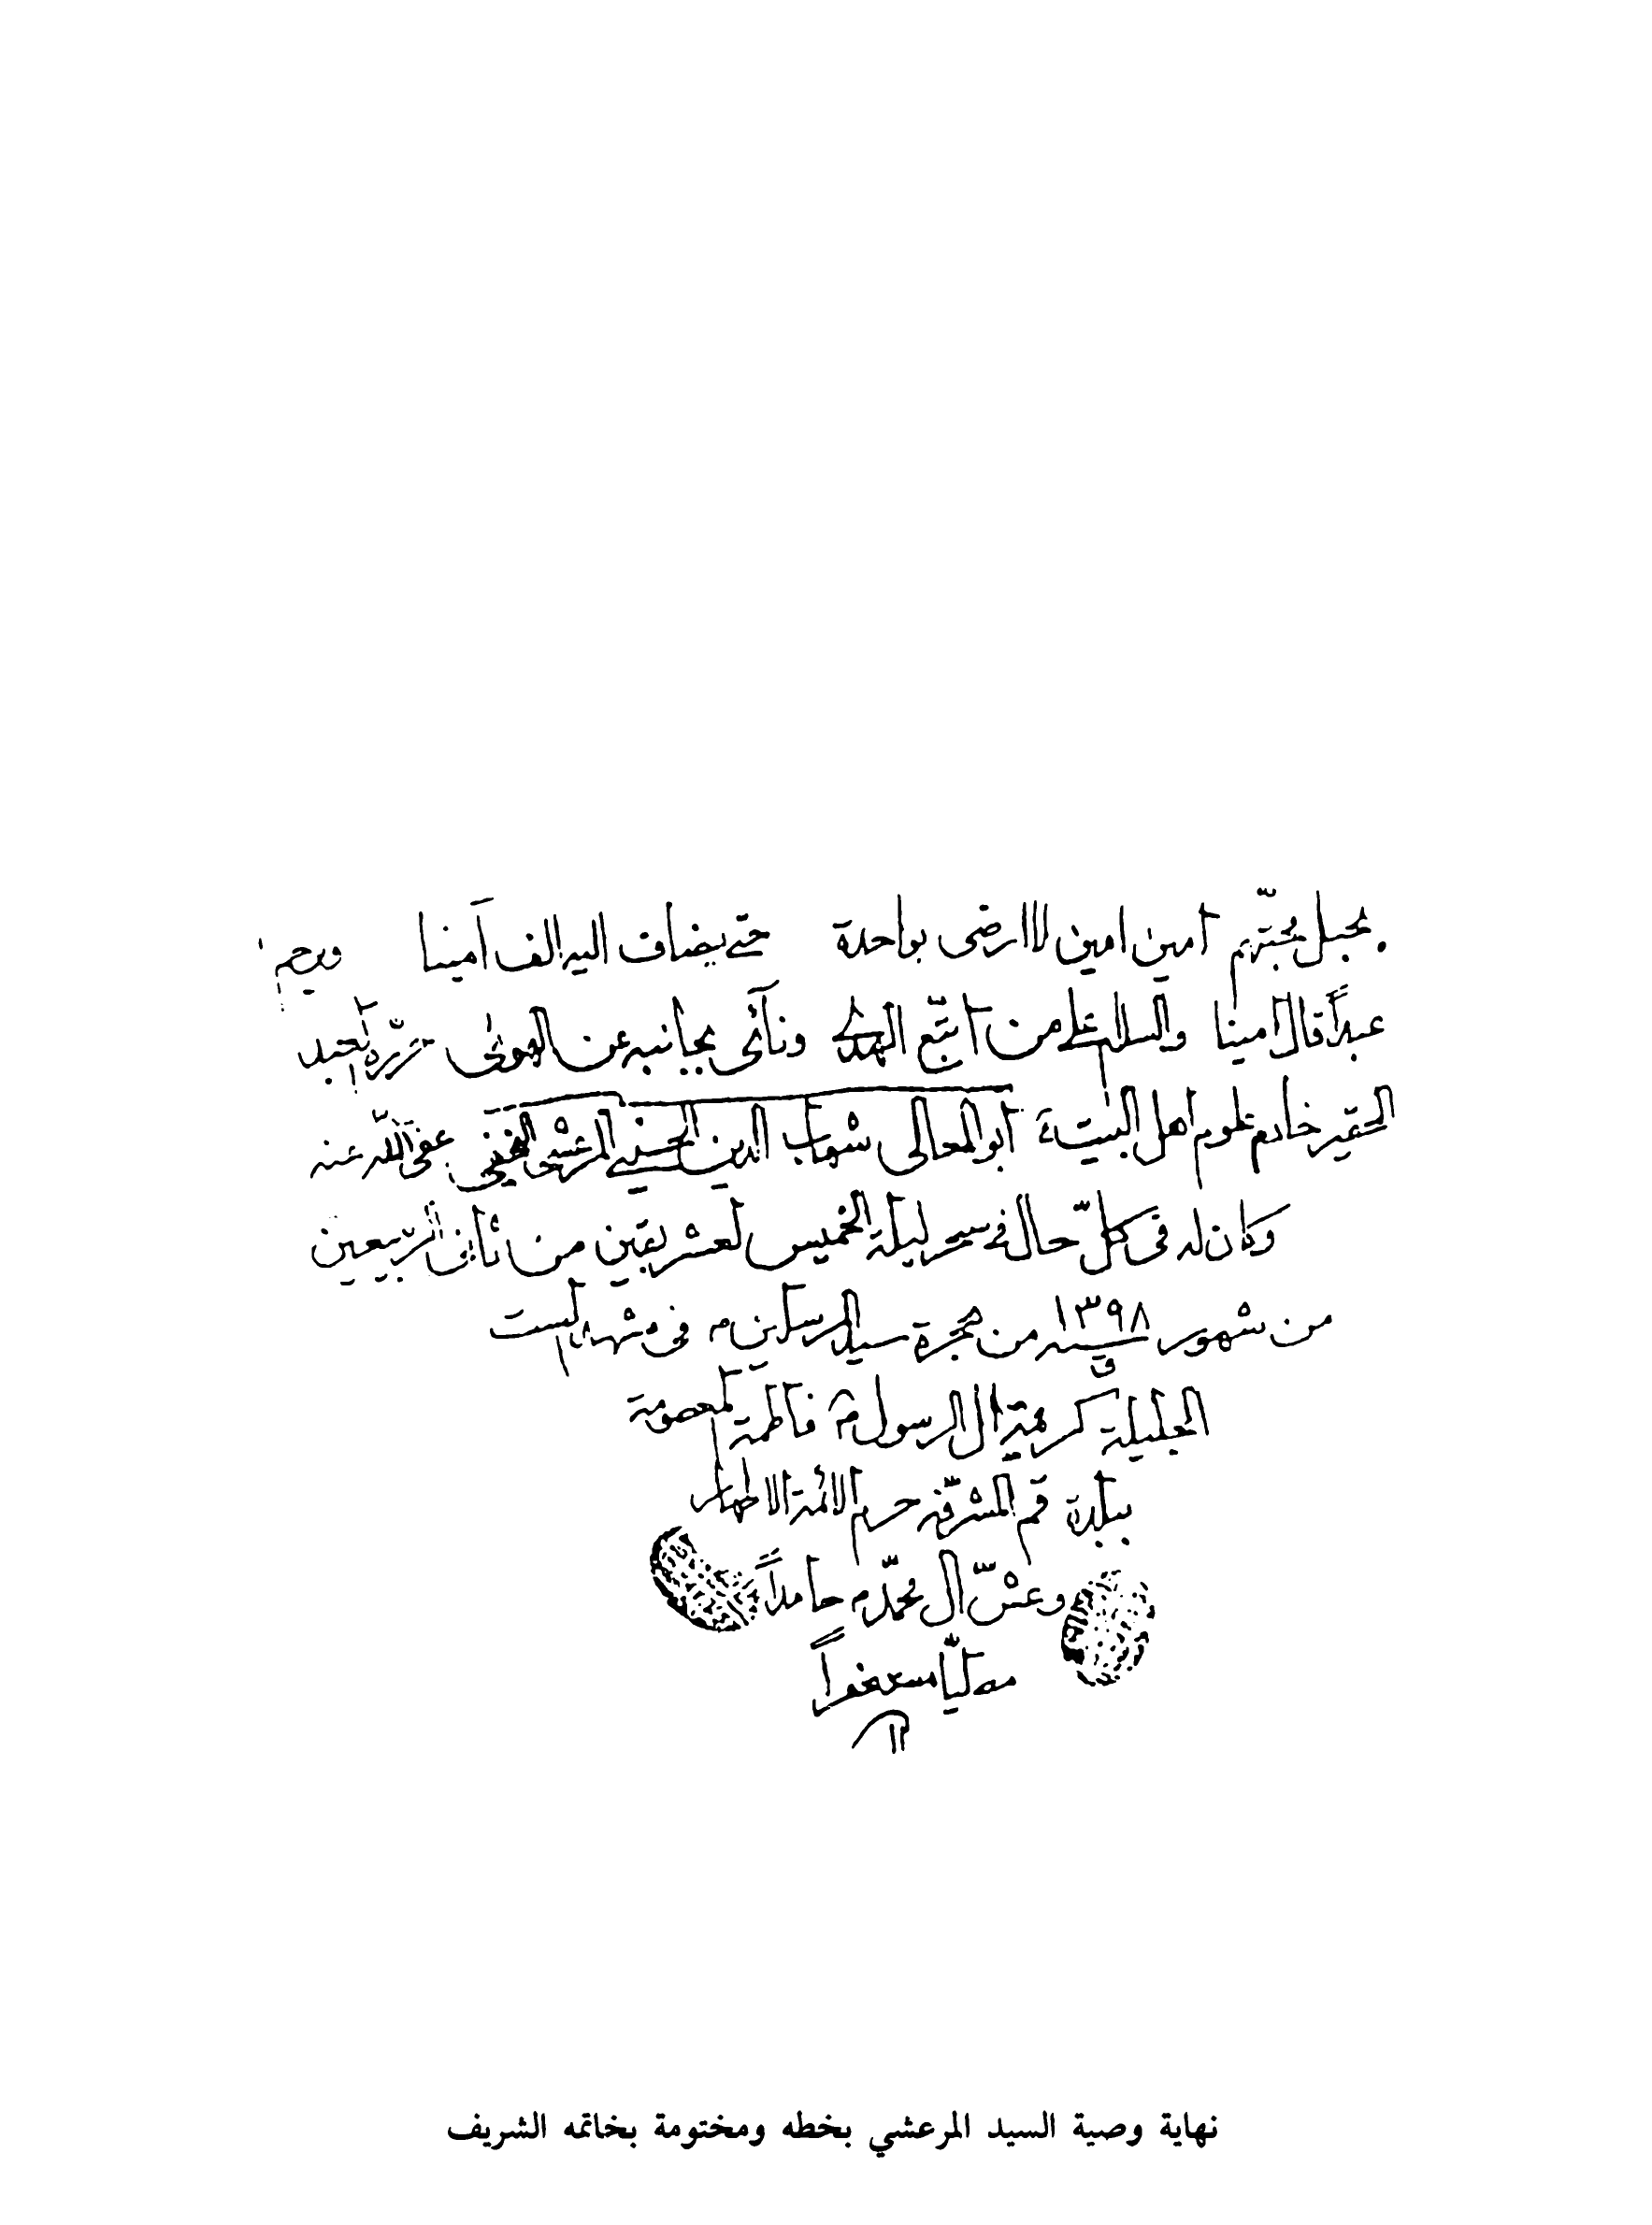 بحبل محبّتهم آمين امين لا ارضى بواحدة حتى يضاف اليه الف آمينا ويرحم
عبداً قال امينا والسلام على من اتبّع الهدى ونآى بجانبه عن الهوى حرّره العبد
الحقير خادم علوم اهل البيت ع ابو المعالى شهاب الدين الحسينى المرعشى النجفى عفى اللّه عنه
وكان له فى كلّ حال فى سحر ليلة الخميس لعشر بقين من ثانى الرّبيعين
من شهور سنة ١٣٩٨ ق من هجرة سيد المرسلين ص فى مشهد الست
الجليلة كريمة ال الرسول ص فاطمة المعصومة
ببلدة قم المشرّفة حرم الائمة الاطهار
وعشّ ال محمّد ص حامداً
مصليّاً مستغفراً
نهاية وصية السيد المرعشي بخطه ومختومة بخاتمه الشريف